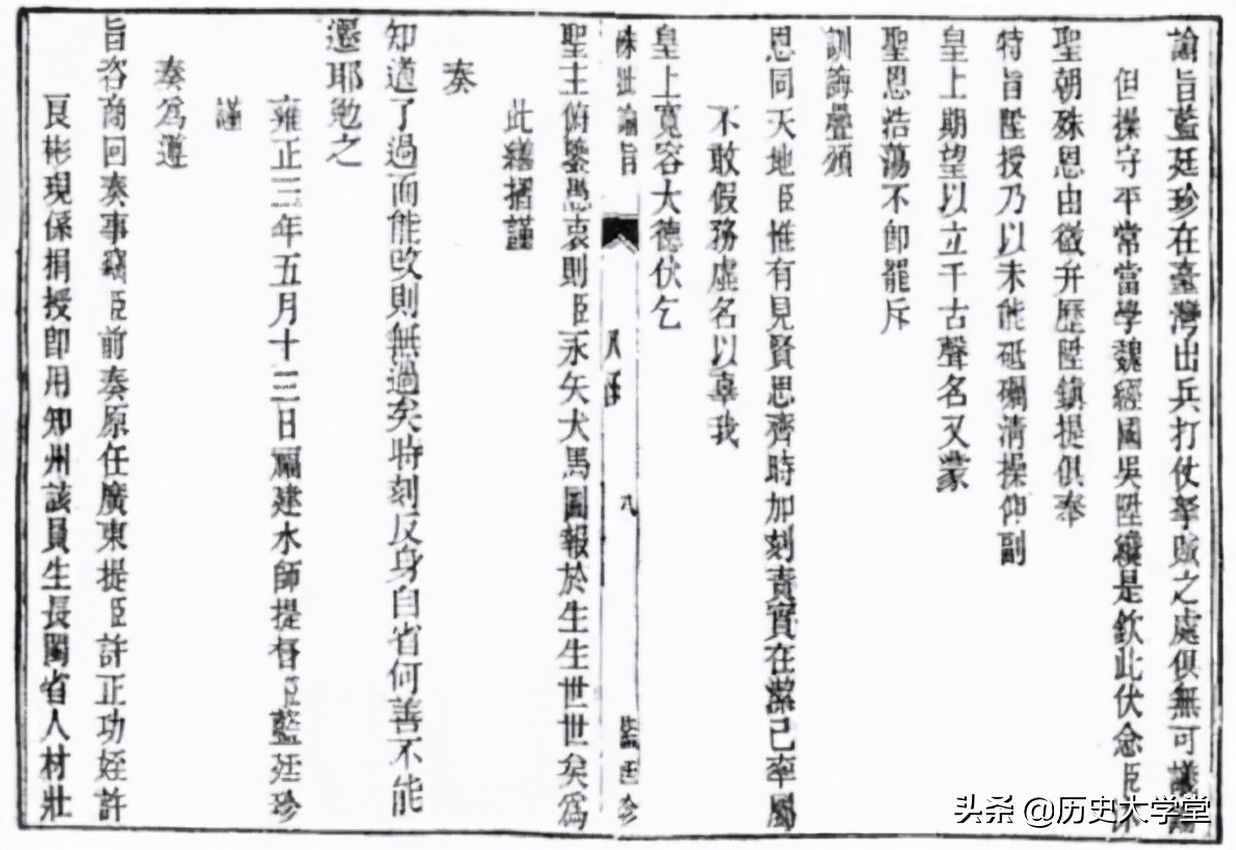 諭旨藍廷珍在臺灣出兵打仗拏賊之處俱無可議論
但操守平常當學魏經國吳陞纔是欽此伏念臣
聖朝殊恩由微弁歷陞鎮提俱奉
特旨陞授乃以未能砥礪清操仰副
皇上期望以立千古聲名又蒙
聖恩浩蕩不卽罷斥
訓誨疊頒
恩同天地臣惟有見賢思齊時加刻責實在潔己率屬
不敢假務虛名以辜我
皇上寬容大德伏乞
硃批諭旨 八 九 藍廷珍
聖主俯鑒愚衷則臣永矢犬馬圖報於生生世世矣爲
此繕摺謹
奏
知道了過而能改則無過矣時刻反身自省何善不能
遷耶勉之
雍正三年五月十三日福建水師提督臣藍廷珍
謹
奏爲遵
旨咨商回奏事竊臣前奏原任廣東提臣許正功姪許
良彬現係捐授卽用知州該員生長閩省人材壯
头条 @历史大学堂